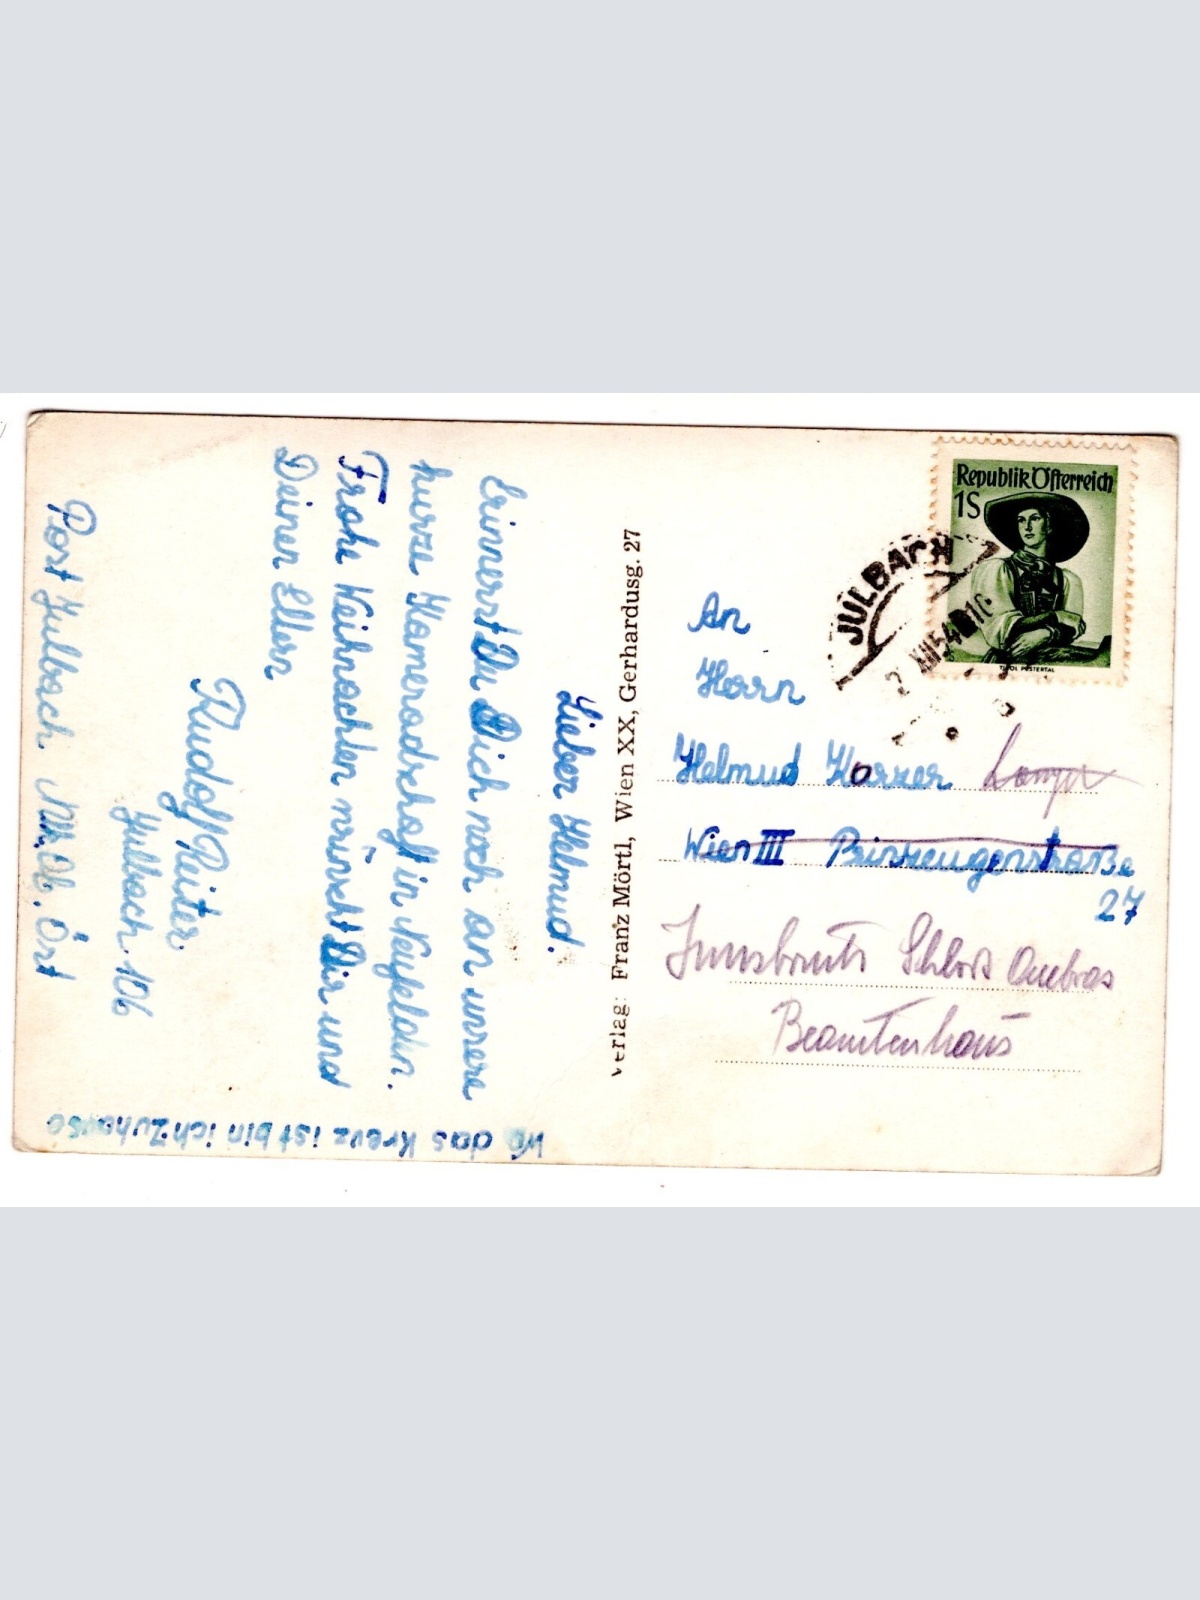 Lieber Helmud.
Erinnerst Du Dich noch an unsere
kurze Kameradschaft in Neufelden.
Frohe Weihnachten wünscht Dir und
Deinen Eltern
Rudolf Reiter
Julbach 106
Post Julbach Ob. Öst
Wo das Kreuz ist bin ich Zuhause
Verlag: Franz Mörtl, Wien XX, Gerhardusg. 27
Republik Österreich
1S
TIROL PUSTERTAL
JULBACH
XII 54
An
Herrn
Helmud Karzer
Wien III Prinzeugenstraße
27
Innsbruck Schloss Ambras
Beamtenhaus